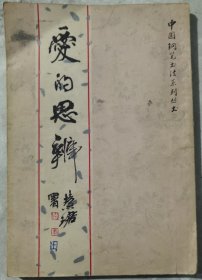 中国钢笔书法系列丛书
爱的思辨